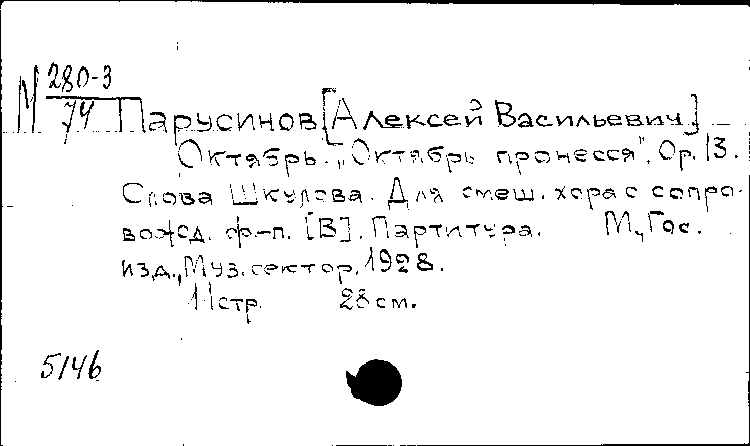 М 280-3
74
Парусинов [Алексей Васильевич]
Октябрь. „Октябрь пронесся". Ор. 13.
Слова Шкулева. Для смеш. хора с сопро-
вожд. ф-п. [В]. Партитура. М., Гос.
изд., Муз. сектор, 1928.
11 стр. 28 см.
5146